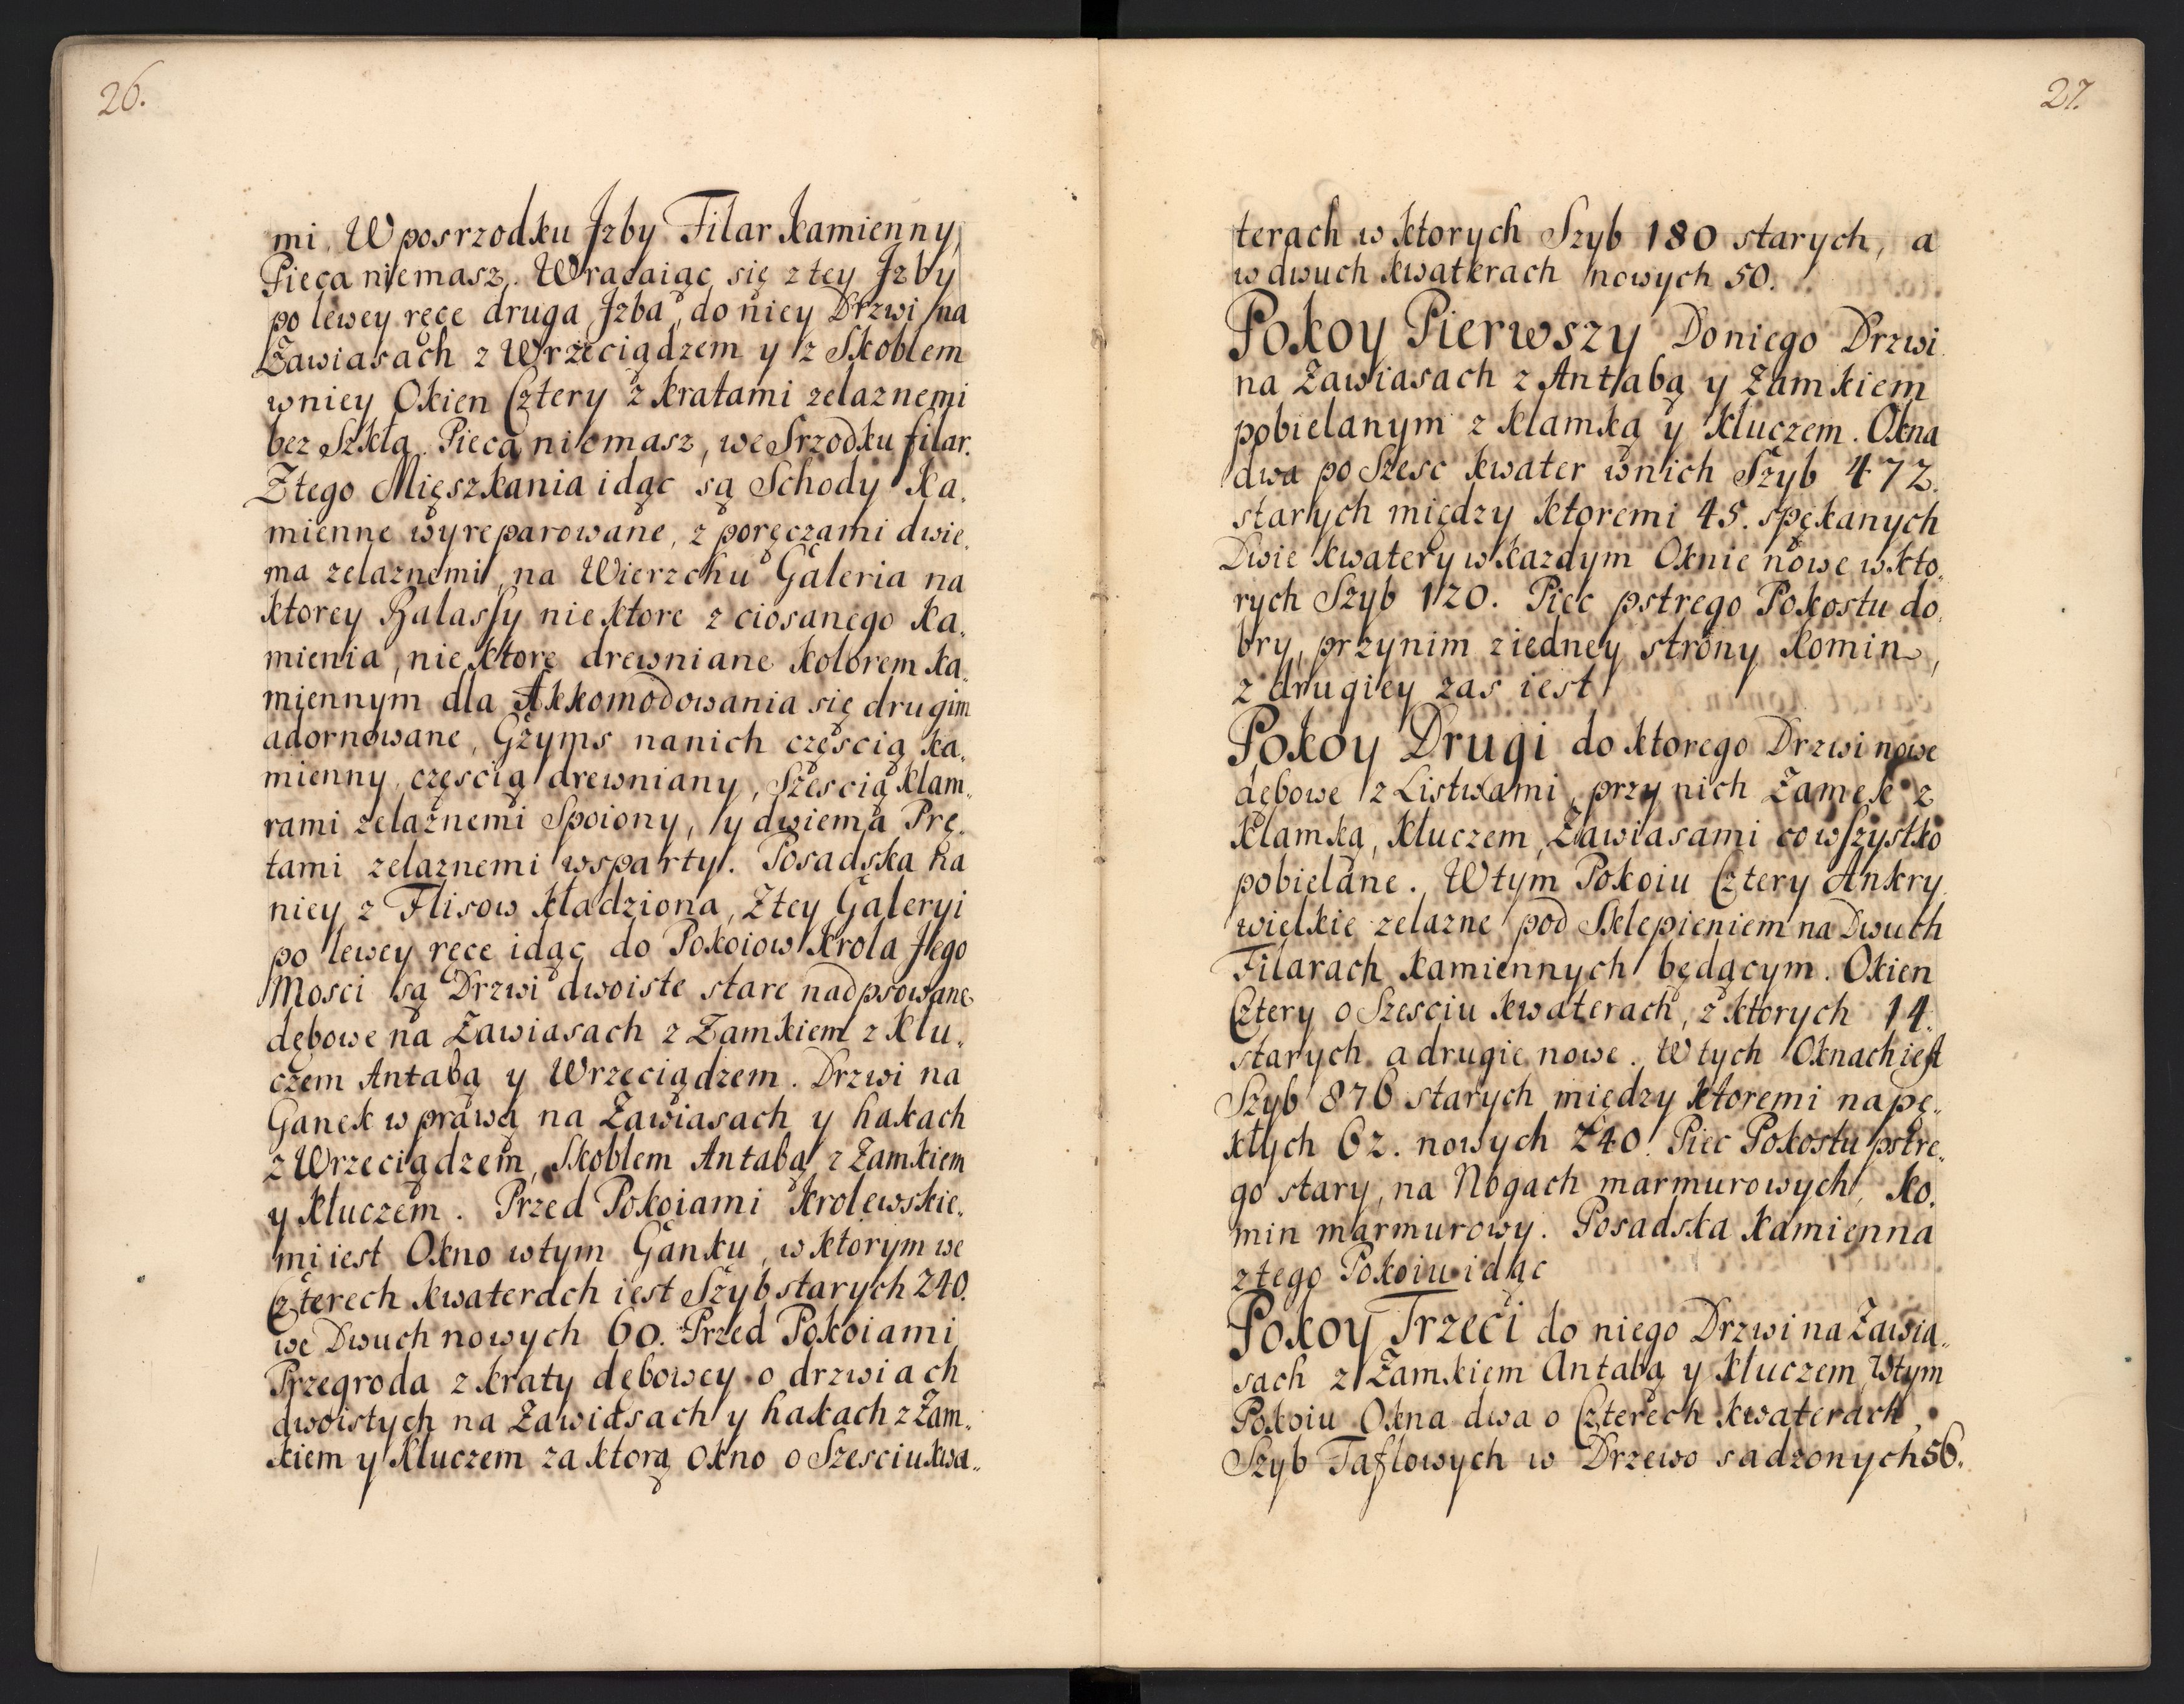 26.
mi. W posrzodku Jzby Filar kamienny,
Pieca niemasz. Wracaiąc się z tey Jzby
po lewey ręce druga Jzba, do niey Drzwi na
Zawiasach z Wrzeciądzem y z Skoblem
w niey Okien Cztery z kratami zelaznemi
bez Szkła. Pieca niemasz, we Srzodku filar.
Z tego Mięszkania idąc są Schody Ka,
mienne wyreparowane, z poręczami dwie,
ma zelaznemi, na Wierzchu Galeria na
ktorey Balassy niektore z ciosanego Ka,
mienia, niektorę drewniane kolorem ka,
miennym dla Akkomodowania się drugim
adornowane, Gzyms na nich częscią ka,
mienny, częscią drewniany, Szescią klam,,
rami zelaznemi Spoiony, y dwiema Prę,
tami zelaznemi wsparty. Posadska na
niey z Flisow kładziona, Z tey Galeryi
po lewey ręce idąc do Pokoiow Krola Jego
Mosci są Drzwi dwoiste stare nadpsowane
dębowe na Zawiasach z Zamkiem z Klu,
czem Antabą y Wrzeciądzem. Drzwi na
Ganek w prawą na Zawiasach y hakach
z Wrzeciądzem, Skoblem Antabą, z Zamkiem
y Kluczem. Przed Pokoiami Krolewskie,
mi iest Okno w tym Ganku, w ktorym we
Czterech kwaterach iest Szyb starych 240.
we Dwuch nowych 60. Przed Pokoiami
Przegroda z kraty dębowey o drzwiach
dwoistych na Zawiasach y hakach z Zam,
kiem y Kluczem za ktorą okno o Szesciu kwa,,
27.
terach w ktorych Szyb 180 starych, a
w dwuch kwaterach nowych 50.
Pokoy Pierwszy Do niego Drzwi
na Zawiasach z Antabą y Zamkiem
pobielanym z Klamką y Kluczem. Okna
dwa po Szesc kwater w nich Szyb 472.
starych między ktoremi 45. spękanych
Dwie kwatery w kazdym Oknie nowe w kto,
rych Szyb 120. Piec pstrego Pokostu do,
bry, przy nim z iedney strony Komin,
z drugiey zas iest
Pokoy Drugi do ktorego Drzwi nowe
dębowe z Listwami, przy nich Zamek z
Klamką, Kluczem, Zawiasami co wszystko
pobielane. W tym Pokoiu Cztery Ankry
wielkie zelazne pod Sklepieniem na Dwuch
Filarach kamiennych będącym. Okien
Cztery o Szesciu kwaterach, z ktorych 14.
starych a drugie nowe. W tych Oknach iest
Szyb 876 starych między ktoremi napę,
kłych 62. nowych 240. Piec Pokostu pstre,
go stary, na Nogach marmurowych, Ko,
min marmurowy. Posadska kamienna
z tego Pokoiu idąc
Pokoy Trzeci do niego Drzwi na Zawia,,
sach z Zamkiem Antabą y Kluczem, W tym
Pokoiu Okna dwa o Czterech kwaterach,
Szyb Taflowych w Drzewo sadzonych 56.